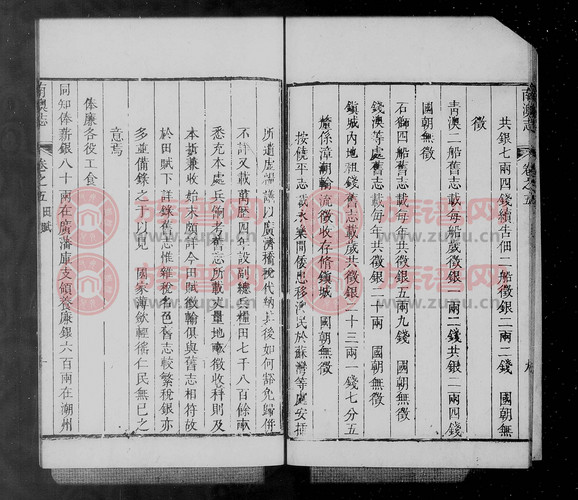 南澳志
卷之五
共銀七兩四錢續告佃二船徵銀二兩二錢　國朝無
徵
青澳二船舊志載每船歲徵銀一兩二錢共銀二兩四錢
國朝無徵
石獅四船舊志載每年共徵銀五兩九錢　國朝無徵
錢澳等處舊志載每年共徵銀二十兩　國朝無徵
鎮城內地租錢舊志載歲共徵銀二十三兩一錢七分五
釐係漳潮輪流徵收存修鎮城　國朝無徵
按饒平志載永樂間倭患移漁民於蘇灣等處安插
所遺虛
議以廣濟橋稅代納其後如何豁免歸併
不詳又載萬歷四年設副總兵糧田七千八百餘兩
悉充本處兵餉者舊志所載丈量地畝徵收秤則及
本折兼收始末頗詳今田賦徵輸俱與舊志相符故
於田賦下詳錄舊志惟雜稅名色舊志較繁稅銀亦
多並備錄之以見　國家薄斂輕徭仁民無已之
意焉
俸廉各役工食
同知俸薪銀八十兩在廣藩庫支領養廉銀六百兩在潮州
南澳志
卷之五
田賦
方譜网
www.zupu.cn
方譜网
www.zupu.cn